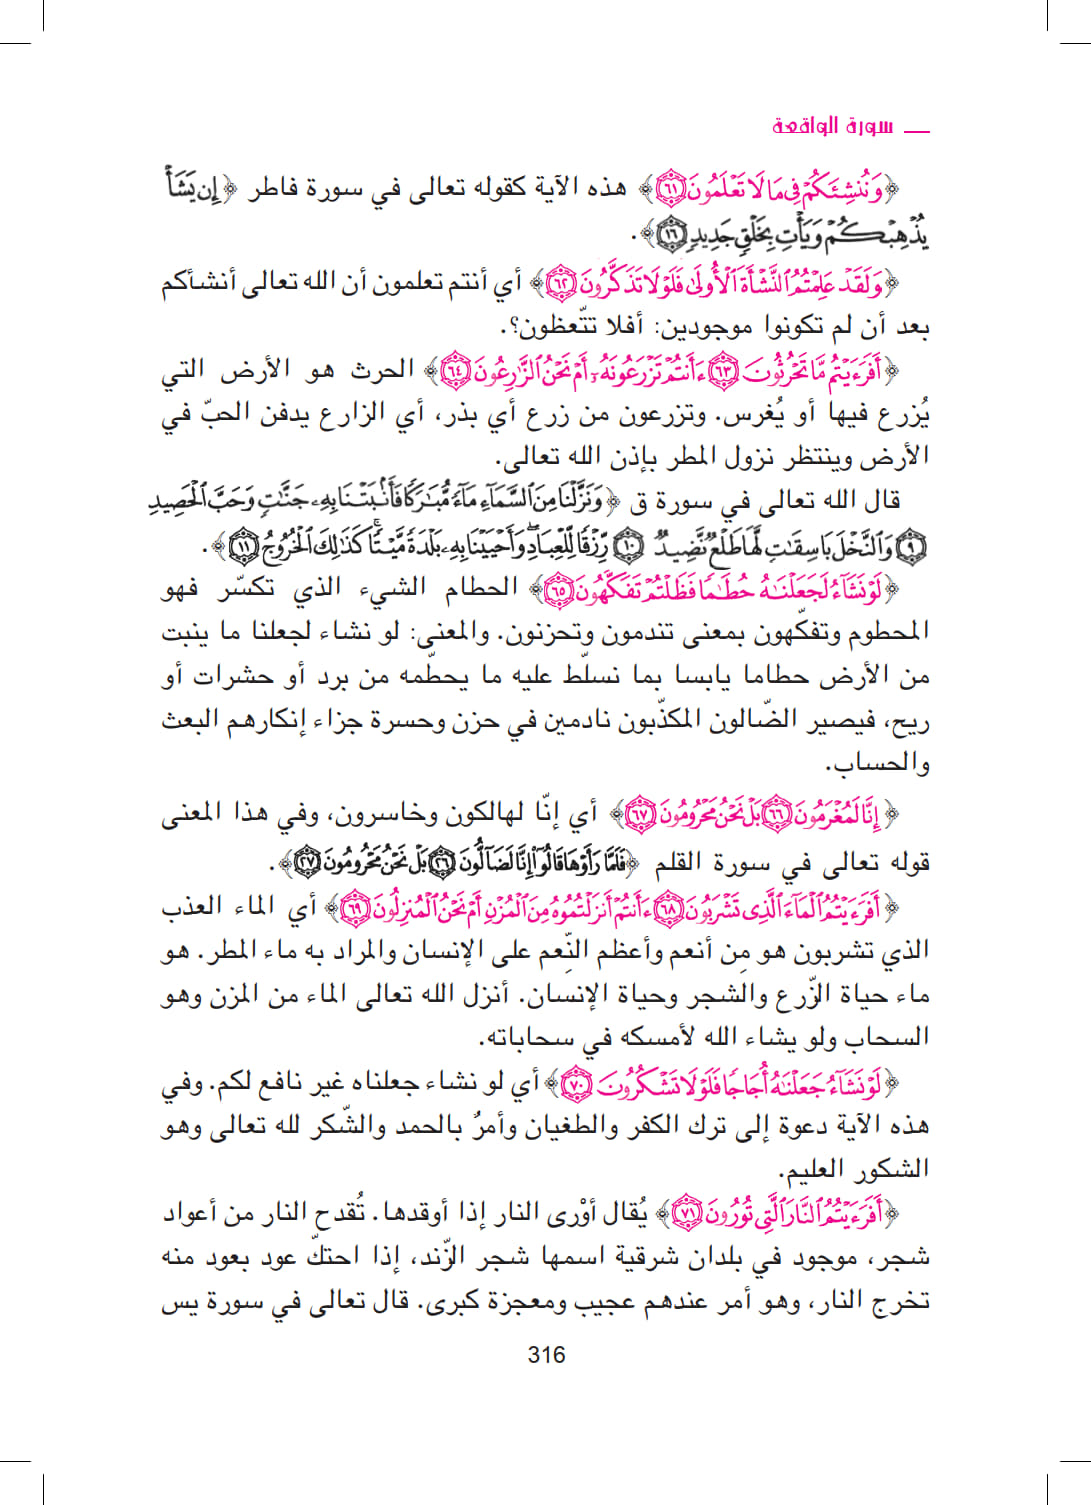 سورة الواقعة
﴿وَنُنشِئَكُمْ فِى مَا لَا تَعْلَمُونَ ٦١﴾ هذه الآية كقوله تعالى في سورة فاطر ﴿إِن يَشَأْ
يُذْهِبْكُمْ وَيَأْتِ بِخَلْقٍ جَدِيدٍ ١٦﴾.
﴿وَلَقَدْ عَلِمْتُمُ ٱلنَّشْأَةَ ٱلْأُولَىٰ فَلَوْلَا تَذَكَّرُونَ ٦٢﴾ أي أنتم تعلمون أن الله تعالى أنشأكم
بعد أن لم تكونوا موجودين: أفلا تتّعظون؟.
﴿أَفَرَءَيْتُم مَّا تَحْرُثُونَ ٦٣ ءَأَنتُمْ تَزْرَعُونَهُۥٓ أَمْ نَحْنُ ٱلزَّٰرِعُونَ ٦٤﴾ الحرث هو الأرض التي
يُزرع فيها أو يُغرس. وتزرعون من زرع أي بذر، أي الزارع يدفن الحبّ في
الأرض وينتظر نزول المطر بإذن الله تعالى.
قال الله تعالى في سورة ق ﴿وَنَزَّلْنَا مِنَ ٱلسَّمَآءِ مَآءً مُّبَٰرَكًا فَأَنۢبَتْنَا بِهِۦ جَنَّٰتٍ وَحَبَّ ٱلْحَصِيدِ
٩ وَٱلنَّخْلَ بَاسِقَٰتٍ لَّهَا طَلْعٌ نَّضِيدٌ ١٠ رِّزْقًا لِّلْعِبَادِ ۖ وَأَحْيَيْنَا بِهِۦ بَلْدَةً مَّيْتًا ۚ كَذَٰلِكَ ٱلْخُرُوجُ ١١﴾.
﴿لَوْ نَشَآءُ لَجَعَلْنَٰهُ حُطَٰمًا فَظَلْتُمْ تَفَكَّهُونَ ٦٥﴾ الحطام الشيء الذي تكسّر فهو
المحطوم وتفكّهون بمعنى تندمون وتحزنون. والمعنى: لو نشاء لجعلنا ما ينبت
من الأرض حطاما يابسا بما نسلّط عليه ما يحطّمه من برد أو حشرات أو
ريح، فيصير الضّالون المكذّبون نادمين في حزن وحسرة جزاء إنكارهم البعث
والحساب.
﴿إِنَّا لَمُغْرَمُونَ ٦٦ بَلْ نَحْنُ مَحْرُومُونَ ٦٧﴾ أي إنّا لهالكون وخاسرون، وفي هذا المعنى
قوله تعالى في سورة القلم ﴿فَلَمَّا رَأَوْهَا قَالُوٓا۟ إِنَّا لَضَآلُّونَ ٢٦ بَلْ نَحْنُ مَحْرُومُونَ ٢٧﴾.
﴿أَفَرَءَيْتُمُ ٱلْمَآءَ ٱلَّذِى تَشْرَبُونَ ٦٨ ءَأَنتُمْ أَنزَلْتُمُوهُ مِنَ ٱلْمُزْنِ أَمْ نَحْنُ ٱلْمُنزِلُونَ ٦٩﴾ أي الماء العذب
الذي تشربون هو مِن أنعم وأعظم النِّعم على الإنسان والمراد به ماء المطر. هو
ماء حياة الزّرع والشجر وحياة الإنسان. أنزل الله تعالى الماء من المزن وهو
السحاب ولو يشاء الله لأمسكه في سحاباته.
﴿لَوْ نَشَآءُ جَعَلْنَٰهُ أُجَاجًا فَلَوْلَا تَشْكُرُونَ ٧٠﴾ أي لو نشاء جعلناه غير نافع لكم. وفي
هذه الآية دعوة إلى ترك الكفر والطغيان وأمرٌ بالحمد والشّكر لله تعالى وهو
الشكور العليم.
﴿أَفَرَءَيْتُمُ ٱلنَّارَ ٱلَّتِى تُورُونَ ٧١﴾ يُقال أوْرى النار إذا أوقدها. تُقدح النار من أعواد
شجر، موجود في بلدان شرقية اسمها شجر الزّند، إذا احتكّ عود بعود منه
تخرج النار، وهو أمر عندهم عجيب ومعجزة كبرى. قال تعالى في سورة يس
316